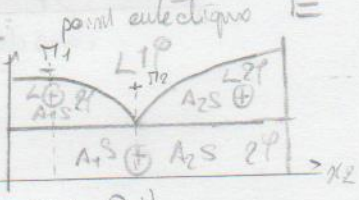 point eutectique
M1
L 1φ
M2
L ⊕ A1S 2φ
A2S ⊕ L 2φ
A1S ⊕ A2S 2φ
x2